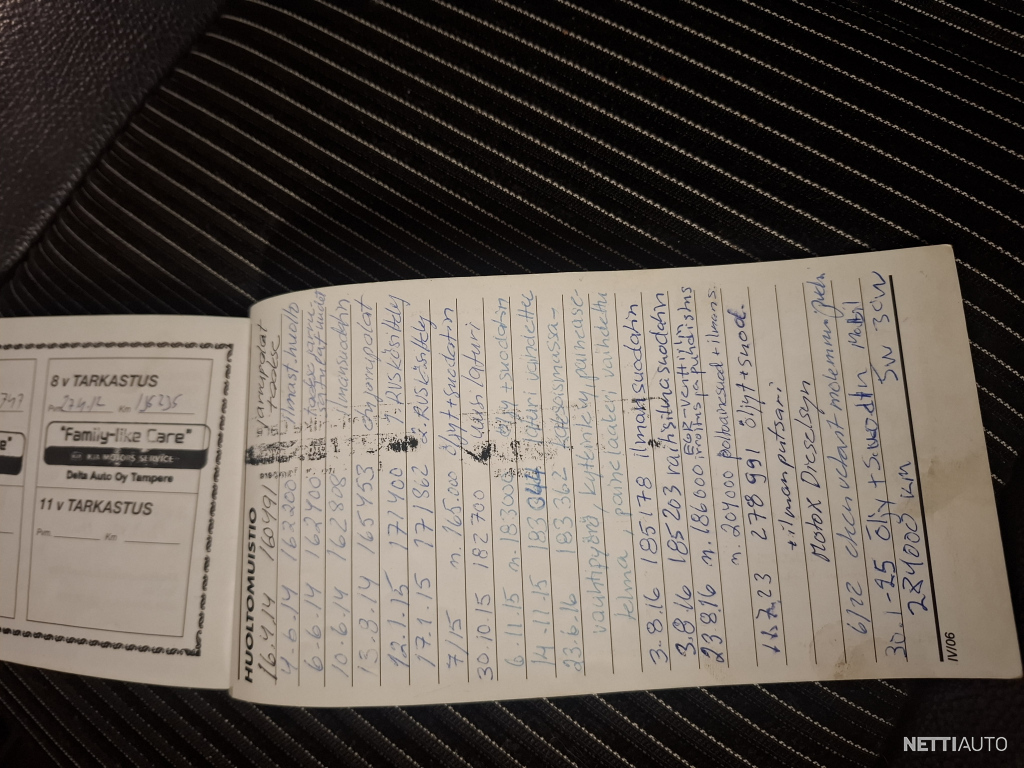 8 v TARKASTUS
Pvm 27.4.12 Km 136235
"Family-like Care"
KIA MOTORS SERVICE
Delta Auto Oy Tampere
11 v TARKASTUS
Pvm. Km
HUOLTOMUISTIO
16.4.14 160491 jarrupalat taakse
4.6.14 162200 ilmast.huolto
6.6.14 162400
10.6.14 162808 ilmansuodatin
13.8.14 165453 etujarrupalat
12.1.15 171400 1. RUSKÄSITTELY
17.1.15 171862 2. RUSKÄSITTELY
7/15 n. 165.00 öljyt+suodatin
30.10.15 182700 uusi laturi
6.11.15 n. 183000 öljy+suodatin
14.11.15 laturi vaihdettu
23.6.16 183362
vauhtipyörä, kytkinlevy, painease-
telma, painelaakeri vaihdettu
3.8.16 185178 ilmansuodatin
3.8.16 185203 raitisilmasuodatin
23.8.16 n. 186000 EGR-venttiilin irroitus ja puhdistus
n. 204000 polttoainesuod + ilmans.
23 278991 Öljyt+suod.
+ilmanputsari
Motox Dieselsyn
6/22
30.1-25 Öljy+Suodatin Mobil
281000 km 5W 30W
IV/06
NETTIAUTO